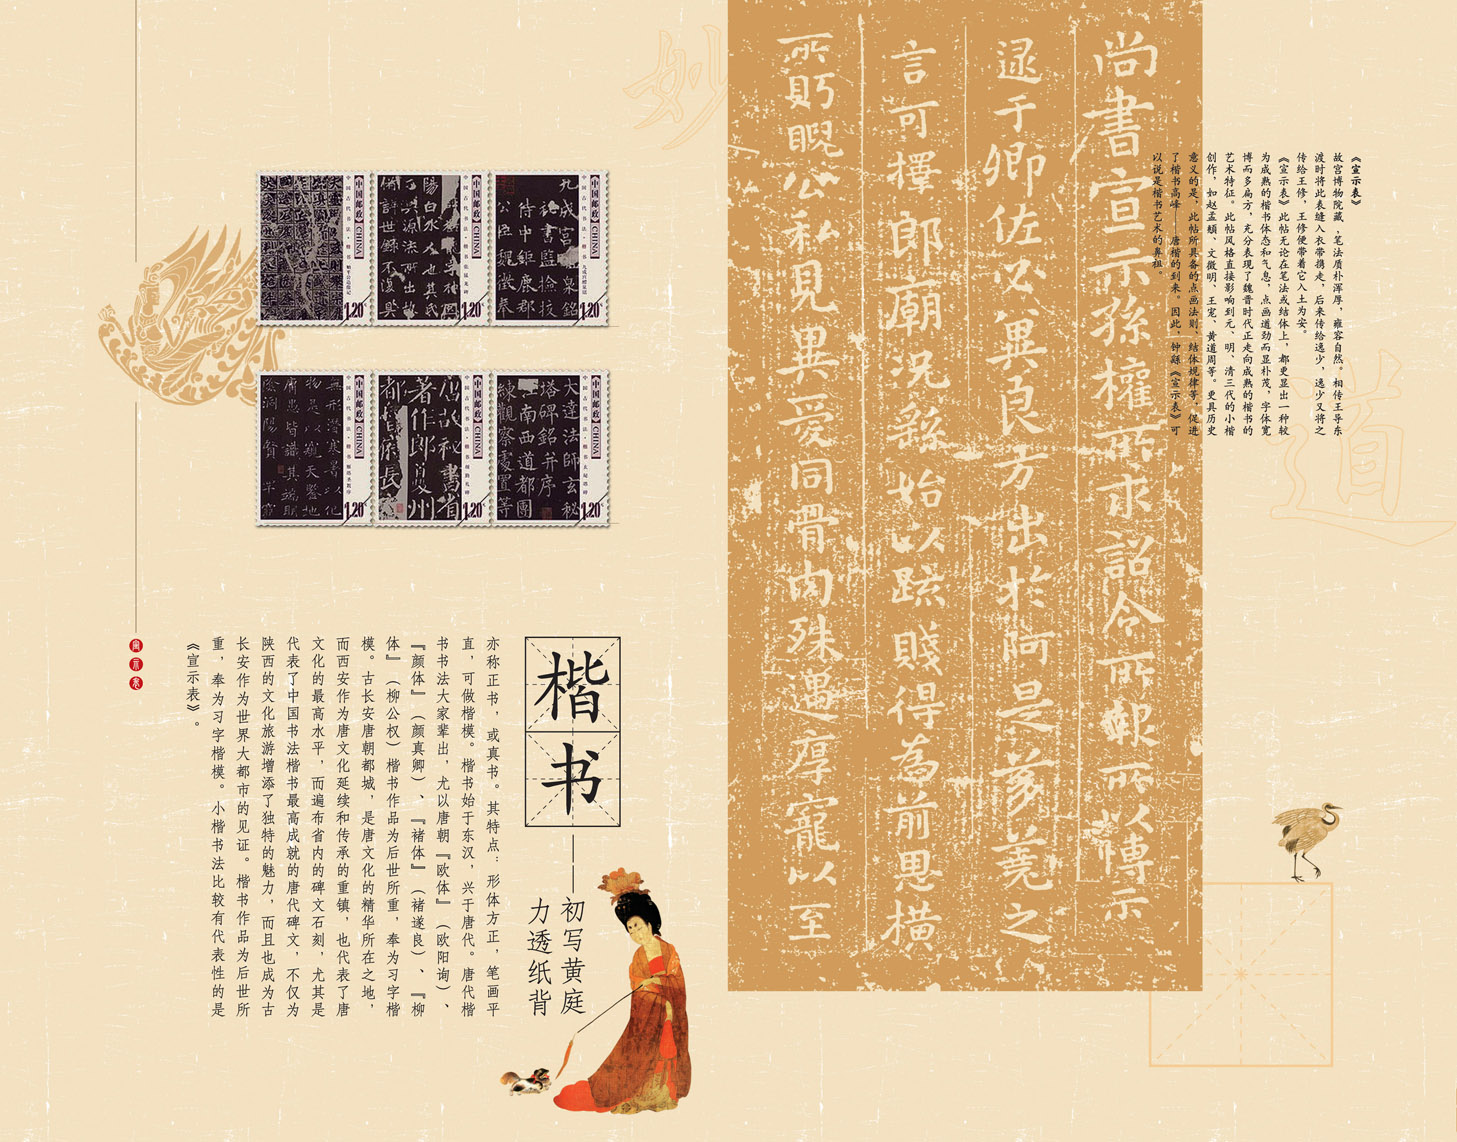 妙
道
《宣示表》
故宫博物院藏,笔法质朴浑厚，雍容自然。相传王导东
渡时将此表缝入衣带携走，后来传给逸少，逸少又将之
传给王修，王修便带着它入土为安。
《宣示表》此帖无论在笔法或结体上，都更显出一种较
为成熟的楷书体态和气息，点画遒劲而显朴茂，字体宽
博而多扁方，充分表现了魏晋时代正走向成熟的楷书的
艺术特征。此帖风格直接影响到元、明、清三代的小楷
创作，如赵孟頫、文徵明、王宠、黄道周等。更具历史
意义的是，此帖所具备的点画法则、结体规律等，促进
了楷书高峰——唐楷的到来。因此，钟繇《宣示表》可
以说是楷书艺术的鼻祖。
尚書宣示孫權所求詔令所報所以博示
逮于卿佐必冀良方出於阿是芻蕘之
言可擇郎廟況繇始以疏賤得為前恩橫
所眄睨公私見異愛同骨肉殊遇厚寵以至
中国邮政 CHINA
中国古代书法·楷书
九成宮醴泉銘
秘書監檢校
侍中鉅鹿郡
公臣魏徵奉
1.20元
中国邮政 CHINA
中国古代书法·楷书 张猛龙碑
1.20元
中国邮政 CHINA
中国古代书法·楷书
1.20元
中国邮政 CHINA
中国古代书法·楷书 玄秘塔碑
大達法師玄秘
塔碑銘并序
江南西道都團
練觀察處置等
1.20元
中国邮政 CHINA
中国古代书法·楷书 颜勤礼碑
1.20元
中国邮政 CHINA
中国古代书法·楷书 雁塔圣教序
1.20元
楷书
——初写黄庭
力透纸背
亦称正书，或真书。其特点：形体方正，笔画平
直，可做楷模。楷书始于东汉，兴于唐代。唐代楷
书书法大家辈出，尤以唐朝『欧体』（欧阳询）、
『颜体』（颜真卿）、『褚体』（褚遂良）、『柳
体』（柳公权）楷书作品为后世所重，奉为习字楷
模。古长安唐朝都城，是唐文化的精华所在之地，
而西安作为唐文化延续和传承的重镇，也代表了唐
文化的最高水平，而遍布省内的碑文石刻，尤其是
代表了中国书法楷书最高成就的唐代碑文，不仅为
陕西的文化旅游增添了独特的魅力，而且也成为古
长安作为世界大都市的见证。楷书作品为后世所
重，奉为习字楷模。小楷书法比较有代表性的是
《宣示表》。
宣示表